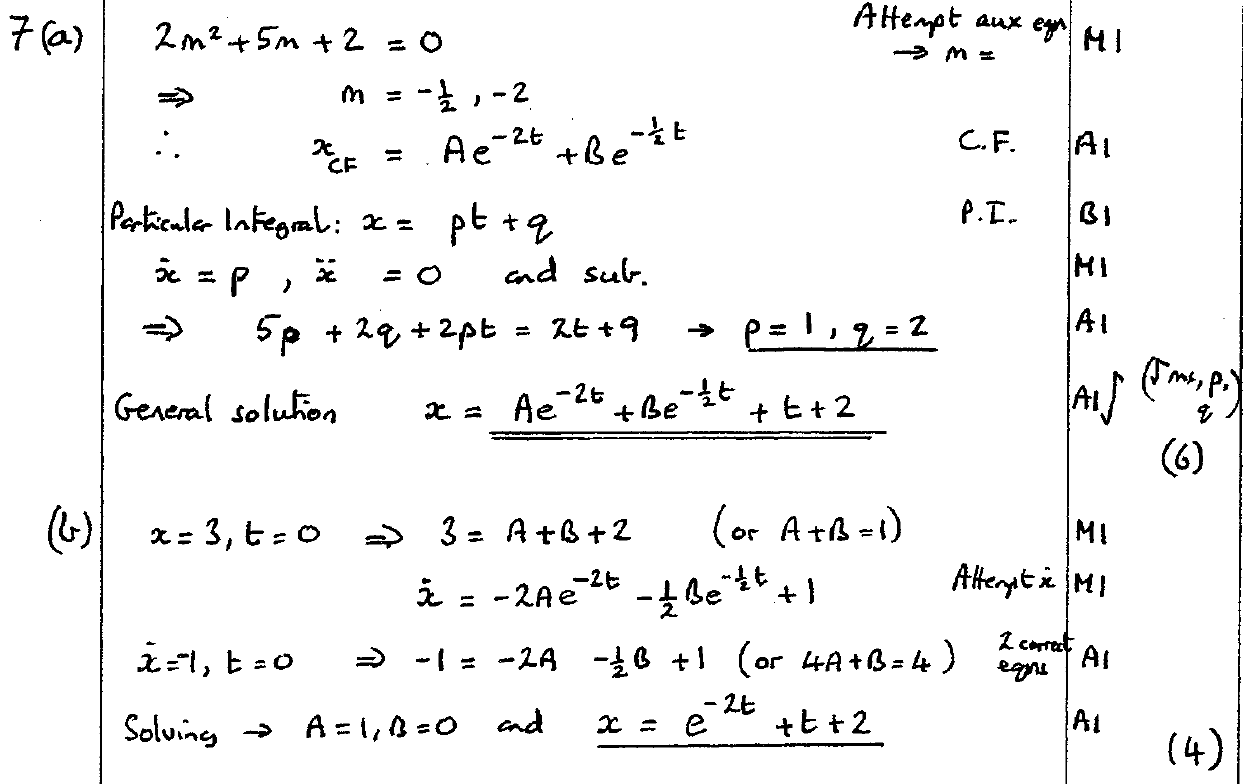 7(a) 2m² + 5m + 2 = 0 Attempt aux eqn → m = M1
⇒ m = -½, -2
∴ x_CF = Ae^{-2t} + Be^{-½t} C.F. A1
Particular Integral: x = pt + q P.I. B1
ẋ = p, ẍ = 0 and sub. M1
⇒ 5p + 2q + 2pt = 2t + 9 → p = 1, q = 2 A1
General solution x = Ae^{-2t} + Be^{-½t} + t + 2 A1∫ (∫ ms, p, q)
(6)
(b) x = 3, t = 0 ⇒ 3 = A + B + 2 (or A + B = 1) M1
ẋ = -2Ae^{-2t} - ½Be^{-½t} + 1 Attempt ẋ M1
ẋ = -1, t = 0 ⇒ -1 = -2A - ½B + 1 (or 4A + B = 4) 2 correct eqns A1
Solving → A = 1, B = 0 and x = e^{-2t} + t + 2 A1
(4)